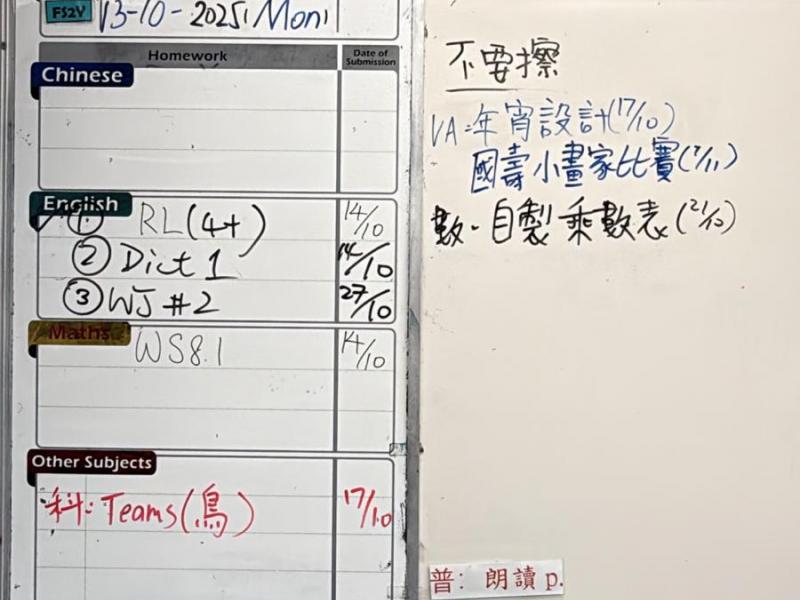 FS2Y 13-10-2025 Mon
Homework Date of Submission
Chinese
English
① RL(4+) 14/10
② Dict 1 14/10
③ WJ #2 27/10
Maths
WS8.1 14/10
Other Subjects
科: Teams(鳥) 17/10
不要擦
VA:年宵設計(17/10)
國壽小畫家比賽(7/11)
數·自製乘數表(21/10)
普: 朗讀 p.